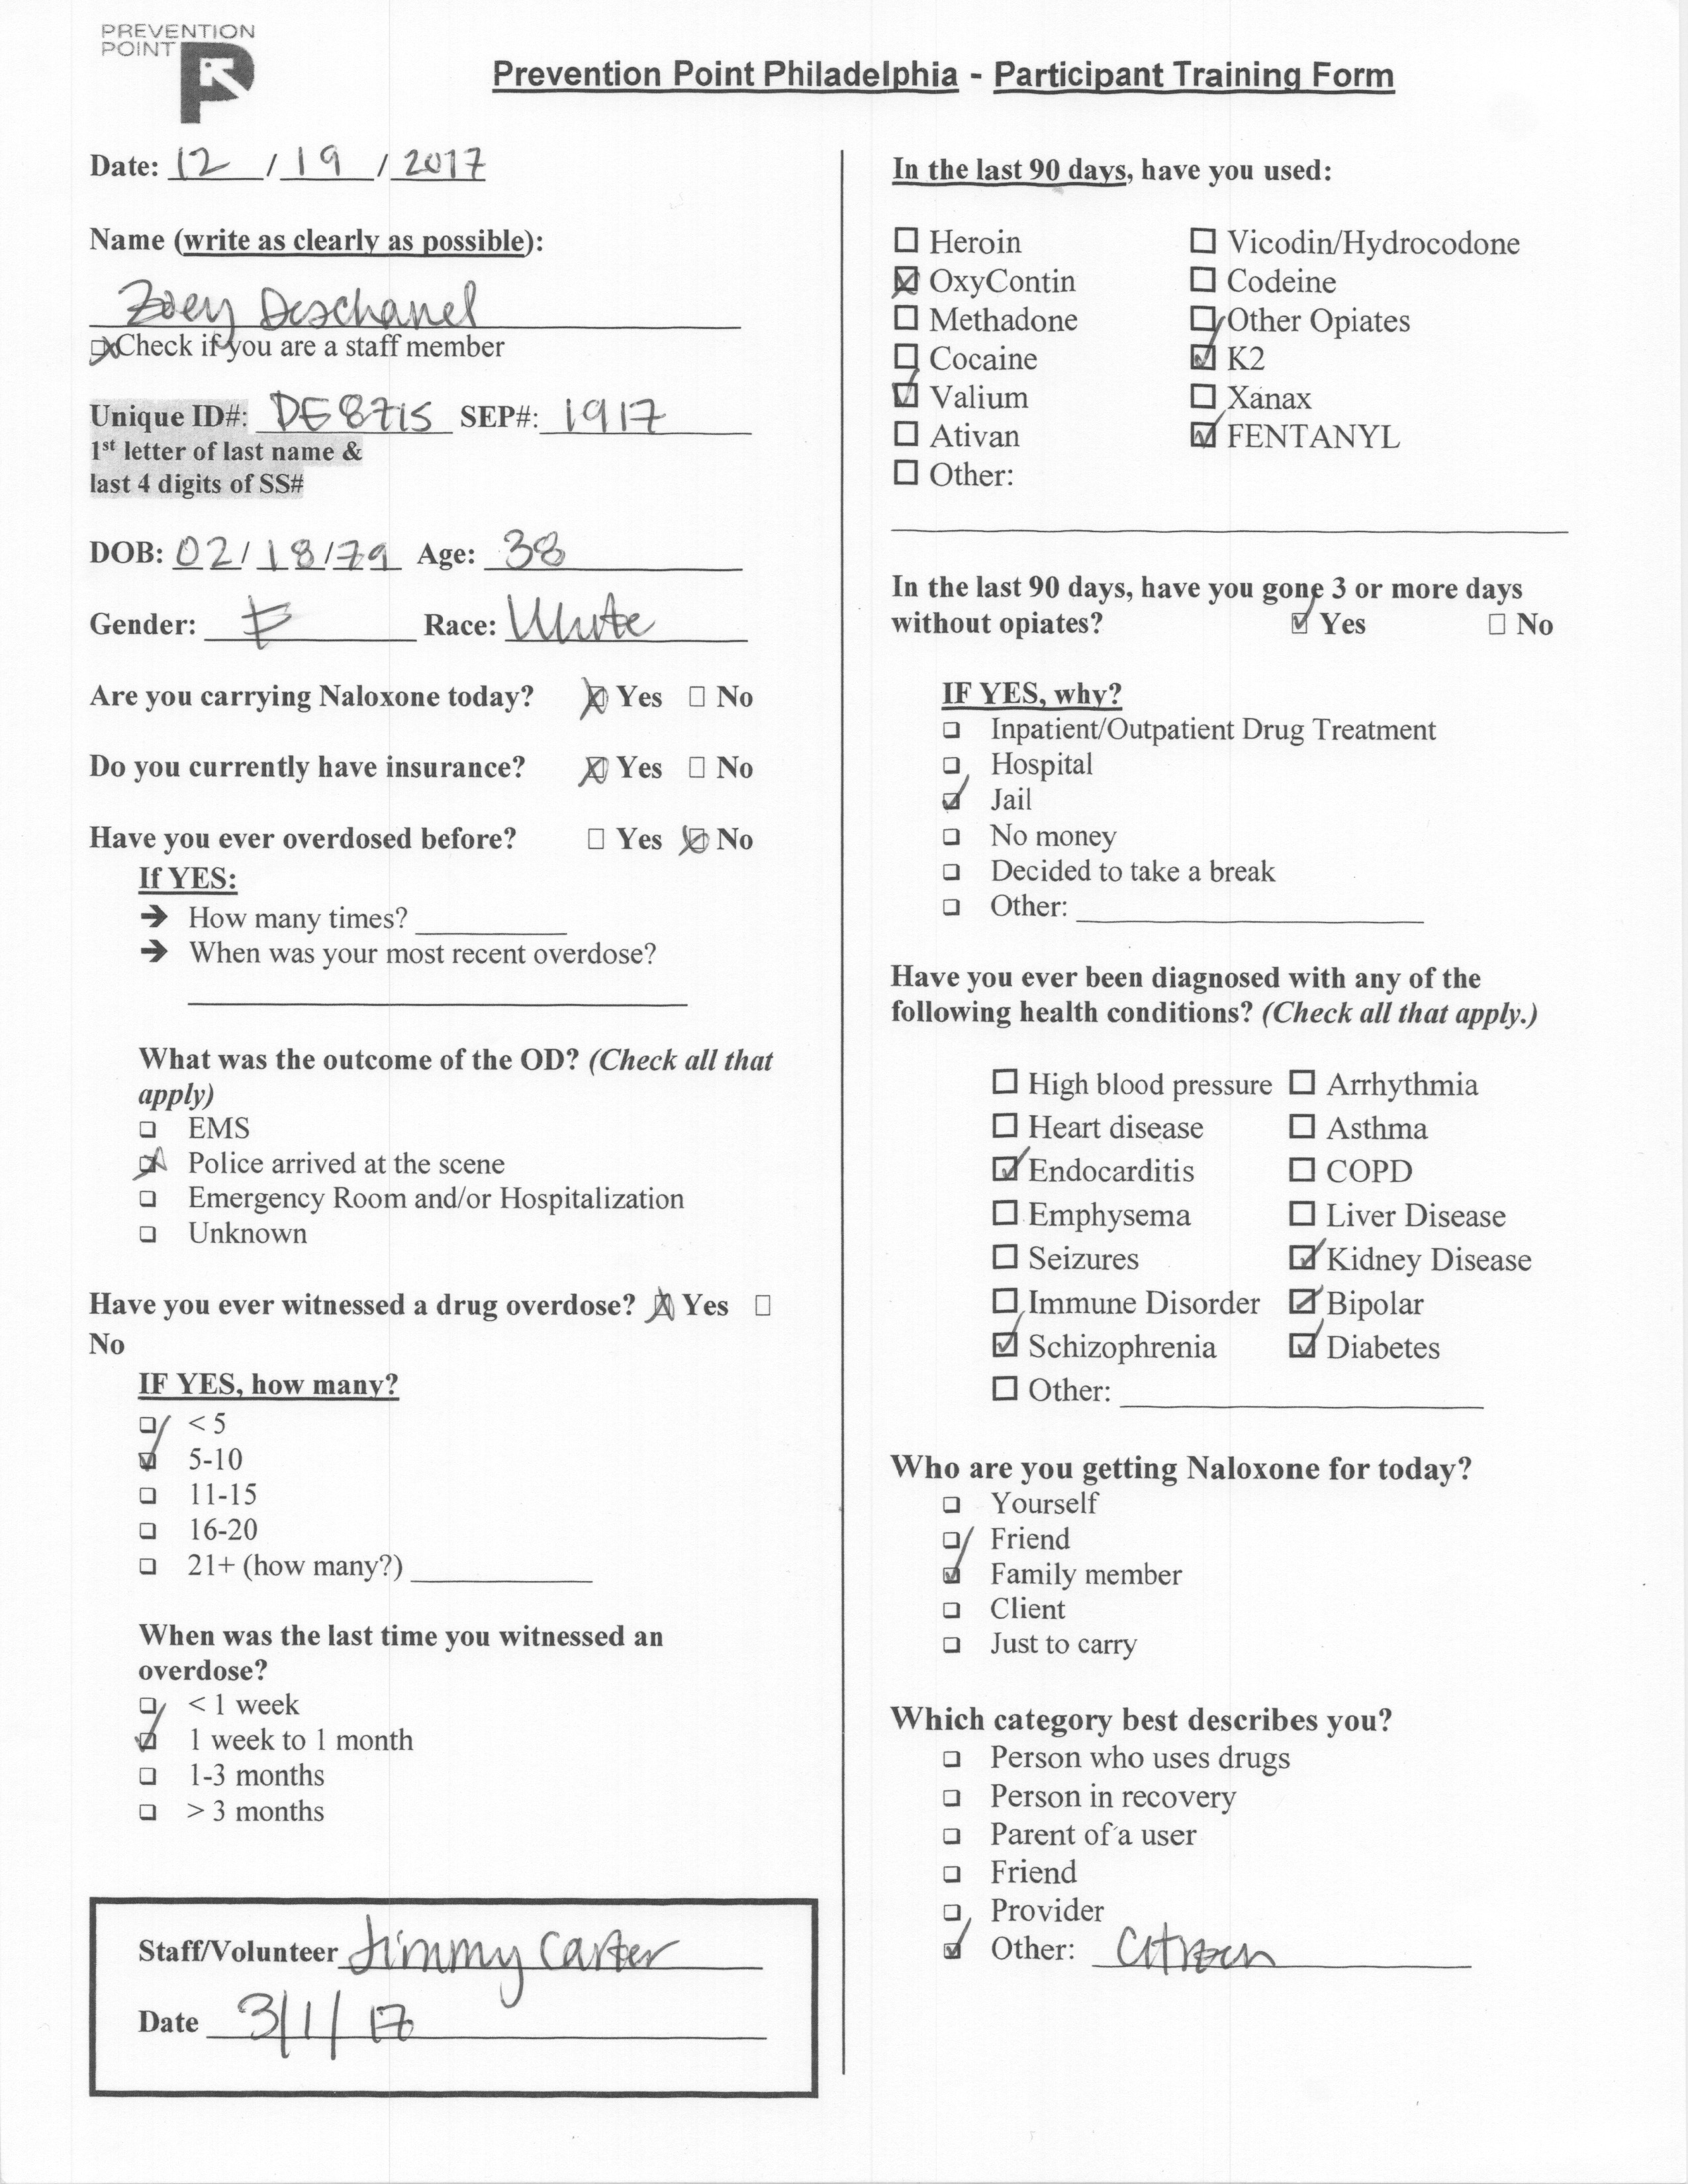 PREVENTION
POINT
Prevention Point Philadelphia - Participant Training Form
Date: 12 / 19 / 2017
Name (write as clearly as possible):
Zoey Deschanel
☒ Check if you are a staff member
Unique ID#: DE8715 SEP#: 1917
1st letter of last name &
last 4 digits of SS#
DOB: 02/18/79 Age: 38
Gender: F Race: White
Are you carrying Naloxone today? ☒ Yes ☐ No
Do you currently have insurance? ☒ Yes ☐ No
Have you ever overdosed before? ☐ Yes ☒ No
If YES:
➔ How many times?
➔ When was your most recent overdose?
What was the outcome of the OD? (Check all that
apply)
☐ EMS
☒ Police arrived at the scene
☐ Emergency Room and/or Hospitalization
☐ Unknown
Have you ever witnessed a drug overdose? ☒ Yes ☐
No
IF YES, how many?
☐ < 5
☑ 5-10
☐ 11-15
☐ 16-20
☐ 21+ (how many?)
When was the last time you witnessed an
overdose?
☐ < 1 week
☑ 1 week to 1 month
☐ 1-3 months
☐ > 3 months
Staff/Volunteer Jimmy Carter
Date 3/1/17
In the last 90 days, have you used:
☐ Heroin ☐ Vicodin/Hydrocodone
☒ OxyContin ☐ Codeine
☐ Methadone ☐ Other Opiates
☐ Cocaine ☑ K2
☑ Valium ☐ Xanax
☐ Ativan ☑ FENTANYL
☐ Other:
In the last 90 days, have you gone 3 or more days
without opiates? ☑ Yes ☐ No
IF YES, why?
☐ Inpatient/Outpatient Drug Treatment
☐ Hospital
☑ Jail
☐ No money
☐ Decided to take a break
☐ Other:
Have you ever been diagnosed with any of the
following health conditions? (Check all that apply.)
☐ High blood pressure ☐ Arrhythmia
☐ Heart disease ☐ Asthma
☑ Endocarditis ☐ COPD
☐ Emphysema ☐ Liver Disease
☐ Seizures ☑ Kidney Disease
☐ Immune Disorder ☑ Bipolar
☑ Schizophrenia ☑ Diabetes
☐ Other:
Who are you getting Naloxone for today?
☐ Yourself
☐ Friend
☑ Family member
☐ Client
☐ Just to carry
Which category best describes you?
☐ Person who uses drugs
☐ Person in recovery
☐ Parent of a user
☐ Friend
☐ Provider
☑ Other: Citizen